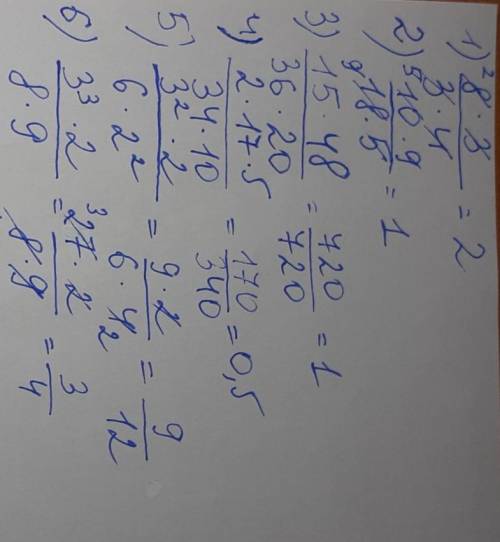 1) ²8·3 / 3·4 = 2
2) ⁵10·9 / ⁹18·5 = 1
3) 15·48 / 36·20 = 720 / 720 = 1
4) 2·17·5 / 34·10 = 170 / 340 = 0,5
5) 3²·2 / 6·2² = 9·2 / 6·4₂ = 9 / 12
6) 3³·2 / 8·9 = ³27·2 / 8·9 = 3 / 4